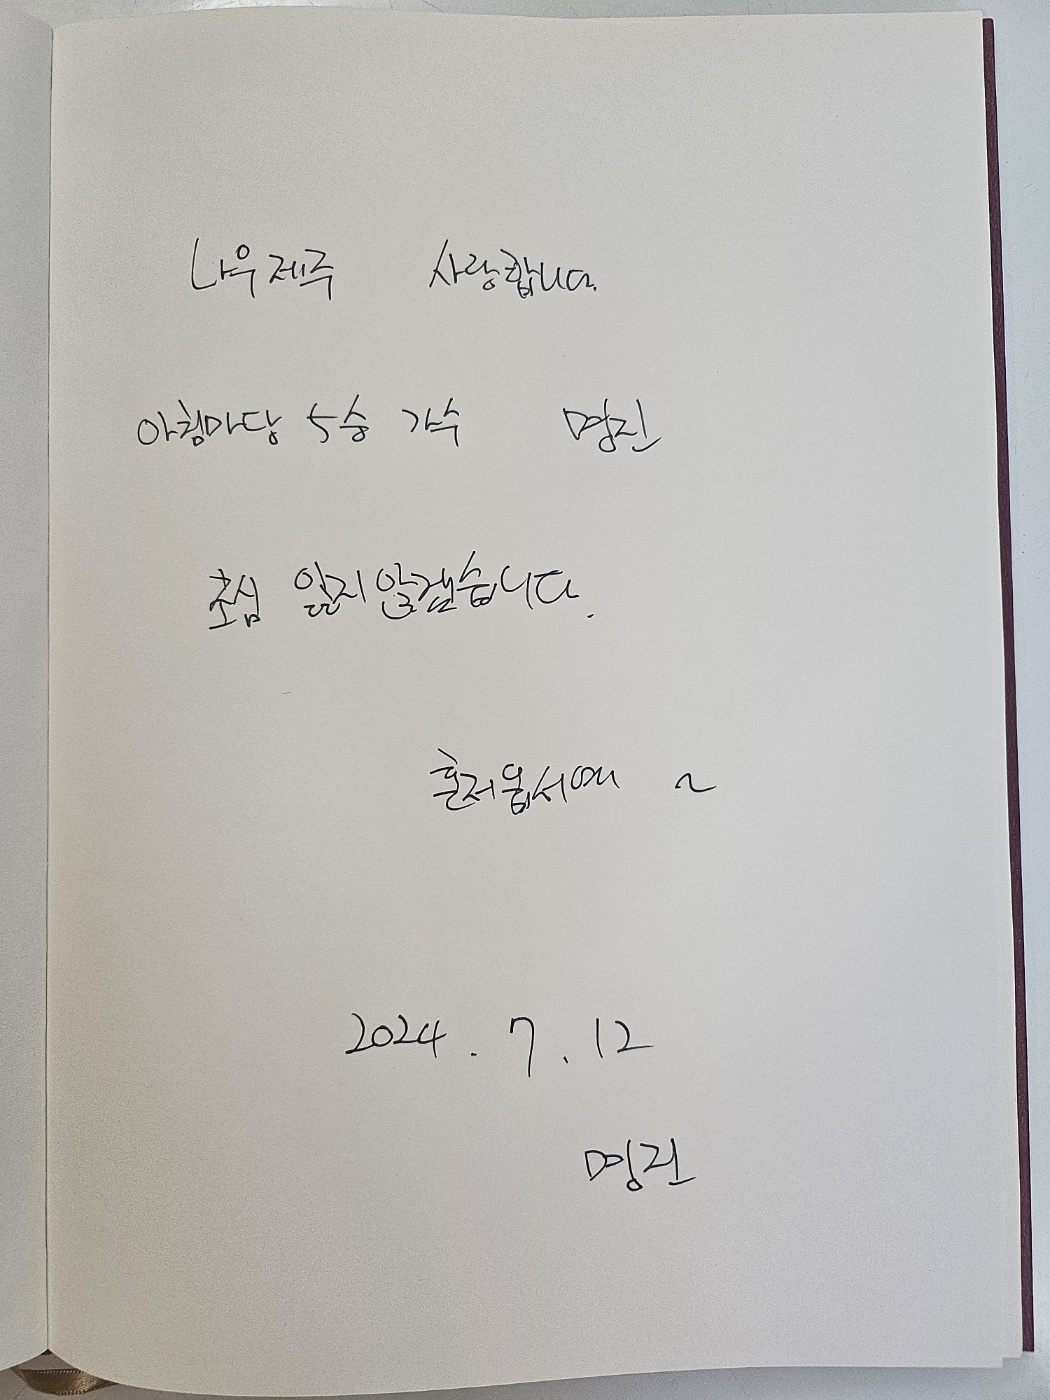 나우제주 사랑합니다.
아침마당 5승 가수 명진
초심 잃지않겠습니다.
혼저옵서예 ~
2024. 7. 12
명진